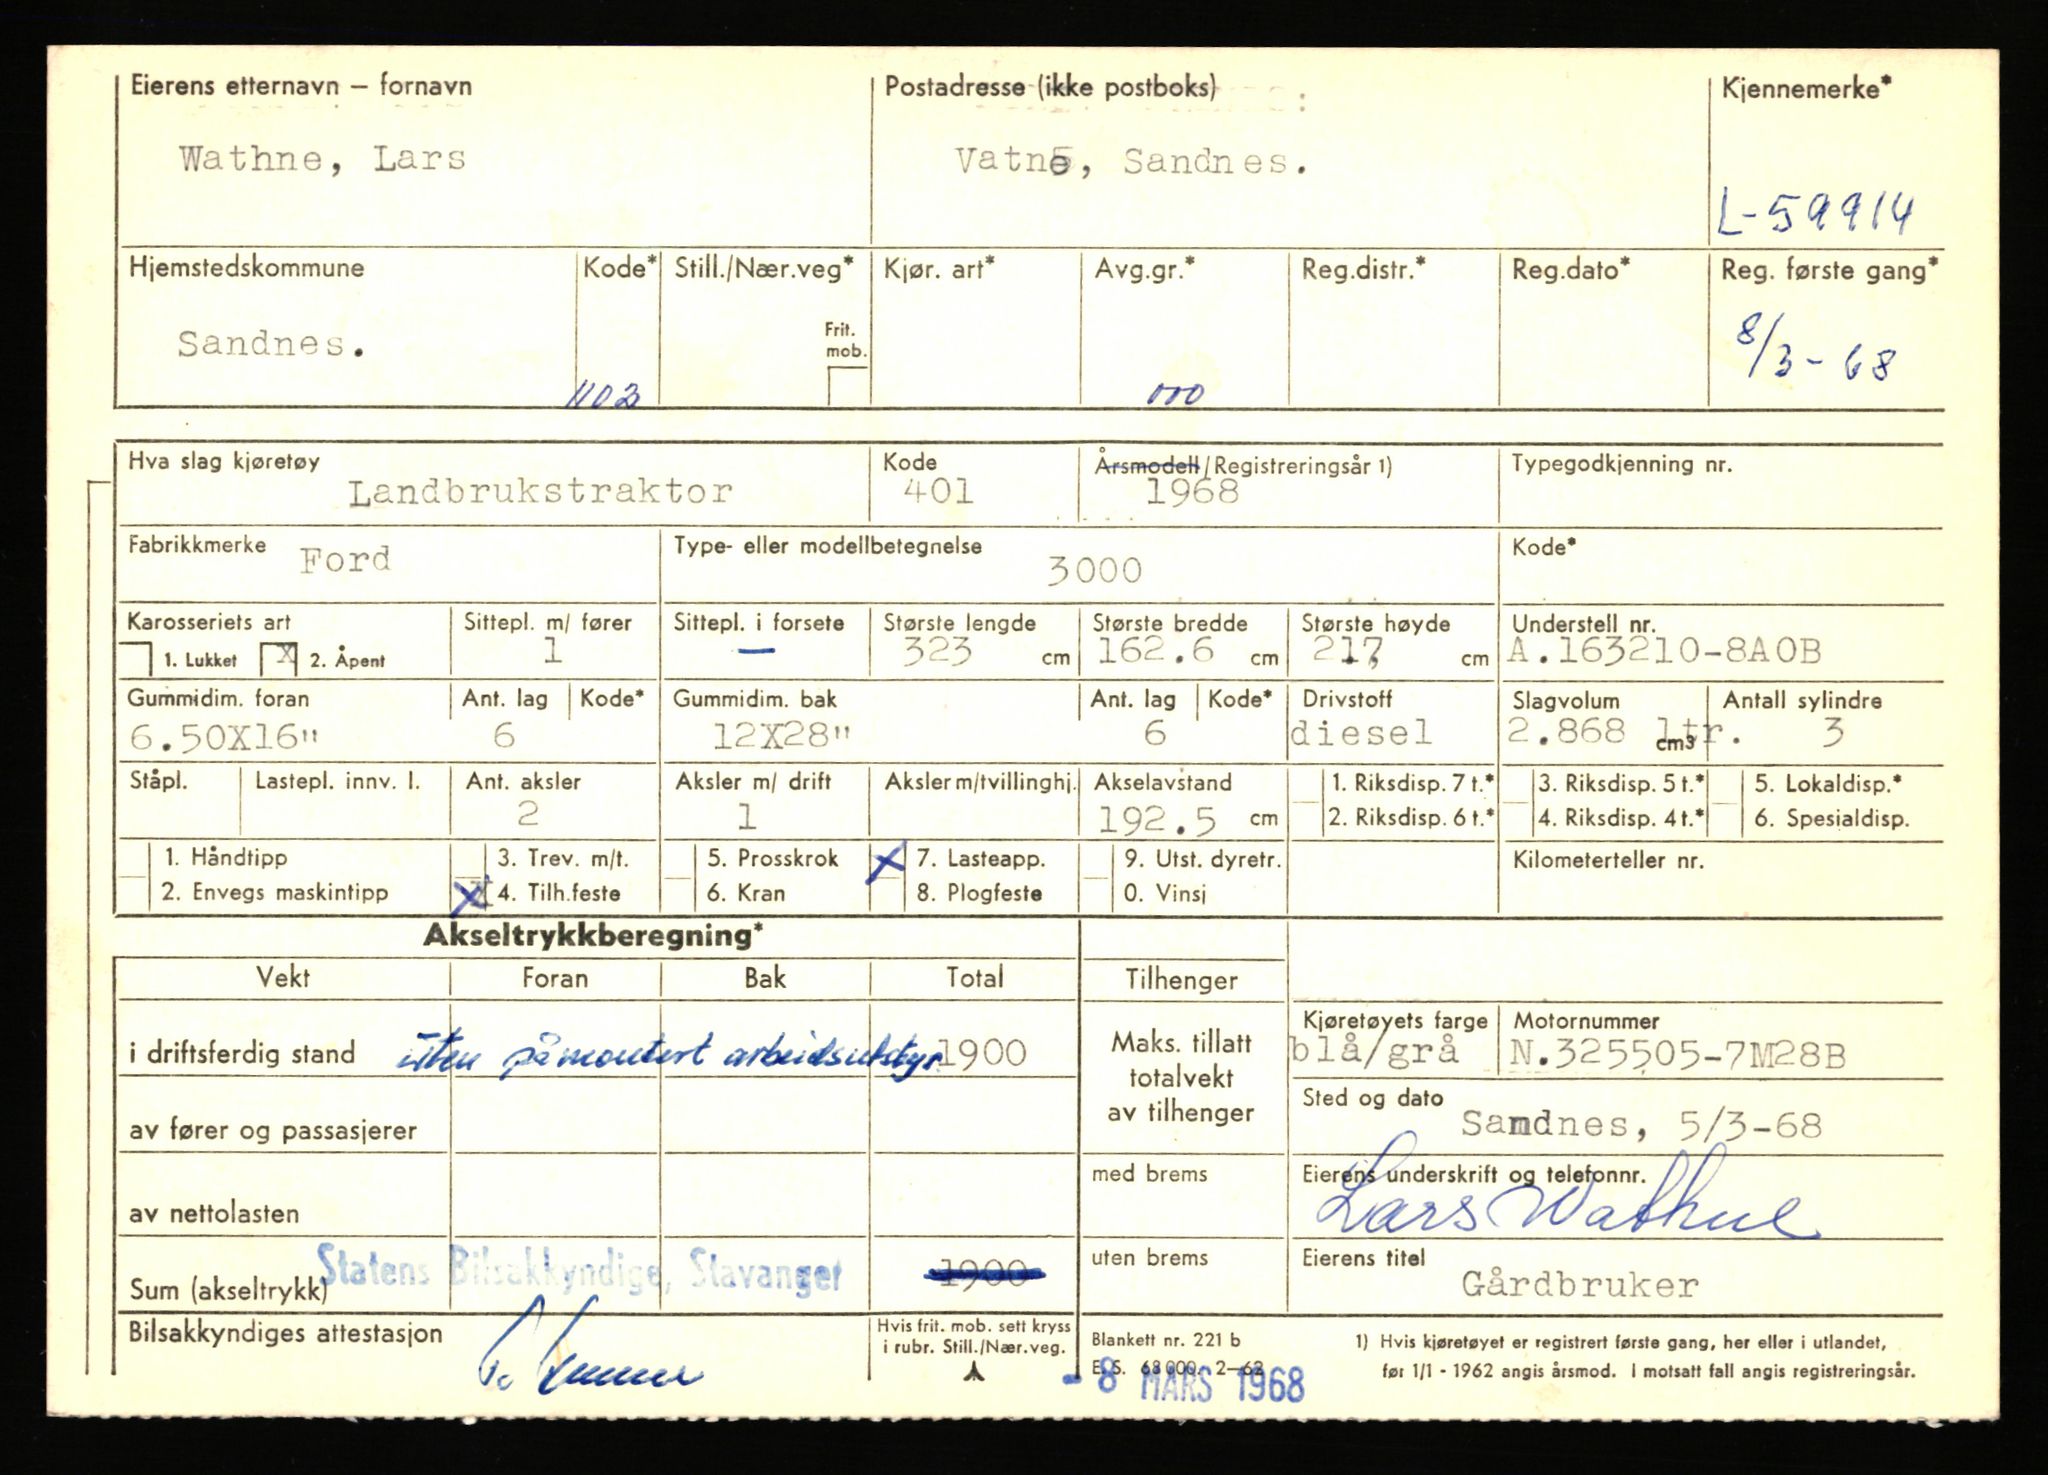 Eierens etternavn – fornavn Postadresse (ikke postboks) Kjennemerke*
Wathne, Lars Vatne, Sandnes.
L-59914
Hjemstedskommune Kode* Still./Nær.veg* Kjør. art* Avg.gr.* Reg.distr.* Reg.dato* Reg. første gang*
Sandnes. Frit. mob. 8/3-68
1102 000
Hva slag kjøretøy Kode Årsmodell/Registreringsår 1) Typegodkjenning nr.
Landbrukstraktor 401 1968
Fabrikkmerke Ford Type- eller modellbetegnelse 3000 Kode*
Karosseriets art Sittepl. m/ fører Sittepl. i forsete Største lengde Største bredde Største høyde Understell nr.
1. Lukket X 2. Åpent 1 – 323 cm 162.6 cm 217 cm A.163210-8A0B
Gummidim. foran Ant. lag Kode* Gummidim. bak Ant. lag Kode* Drivstoff Slagvolum Antall sylindre
6.50X16" 6 12X28" 6 diesel 2.868 ltr. cm3 3
Ståpl. Lastepl. innv. l. Ant. aksler Aksler m/ drift Aksler m/tvillinghj. Akselavstand 1. Riksdisp. 7 t.* 3. Riksdisp. 5 t.* 5. Lokaldisp.*
2 1 192.5 cm 2. Riksdisp. 6 t.* 4. Riksdisp. 4 t.* 6. Spesialdisp.
1. Håndtipp 3. Trev. m/t. 5. Prosskrok X 7. Lasteapp. 9. Utst. dyretr. Kilometerteller nr.
2. Envegs maskintipp X 4. Tilh.feste 6. Kran 8. Plogfeste 0. Vinsj
Akseltrykkberegning*
Vekt Foran Bak Total Tilhenger
Kjøretøyets farge Motornummer
i driftsferdig stand uten påmontert arbeidsutstyr 1900 Maks. tillatt totalvekt av tilhenger blå/grå N.325505-7M28B
Sted og dato
av fører og passasjerer Sandnes, 5/3-68
med brems Eierens underskrift og telefonnr.
av nettolasten Lars Wathne
uten brems Eierens titel
Statens Bilsakkyndige, Stavanger
Sum (akseltrykk) 1900 Gårdbruker
Bilsakkyndiges attestasjon Hvis frit. mob. sett kryss i rubr. Still./Nær.veg.
Blankett nr. 221 b
E. S. 68 000. 2–62
1) Hvis kjøretøyet er registrert første gang, her eller i utlandet,
før 1/1 - 1962 angis årsmod. I motsatt fall angis registreringsår.
- 8 MARS 1968